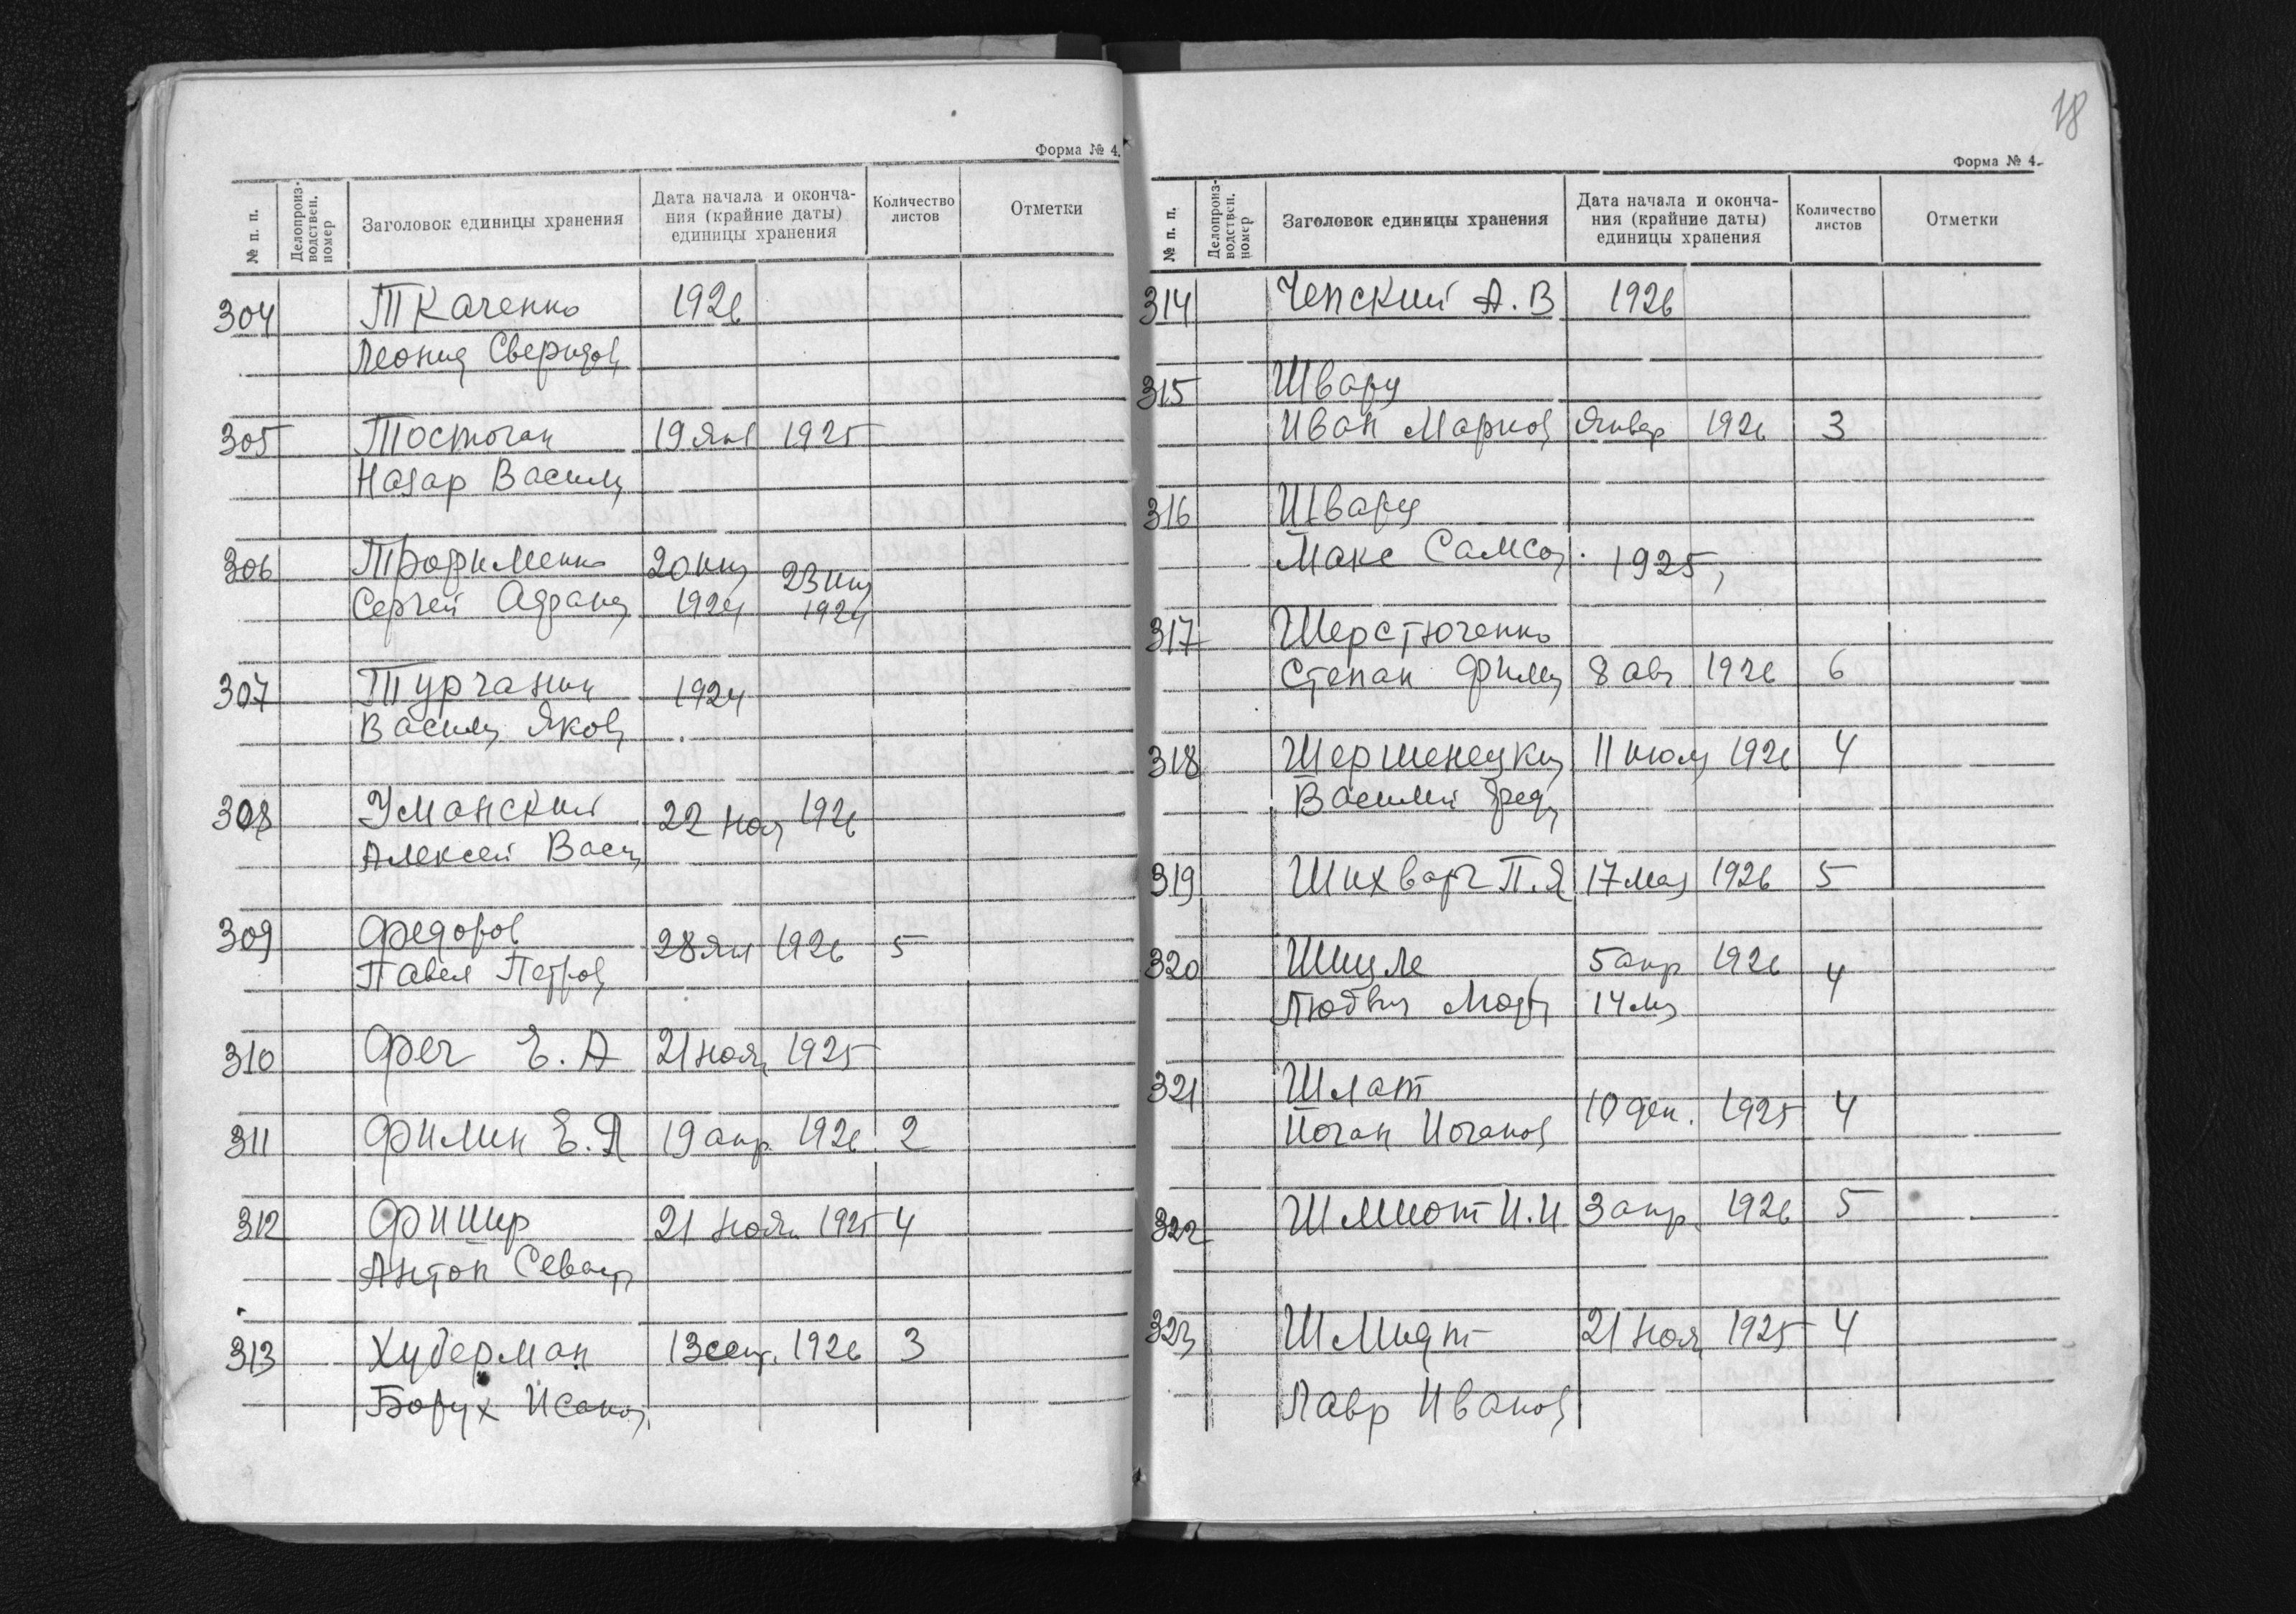 Форма № 4.
№ п. п.
Делопроиз-
водствен.
номер
Заголовок единицы хранения
Дата начала и оконча-
ния (крайние даты)
единицы хранения
Количество
листов
Отметки
304 Ткаченко 1926
Леонид Свиридов
305 Тостоган 19 янв 1925
Назар Васил
306 Трофименко 20 23
Сергей 1924 1924
307 Турчанин 1924
Васил Яков
308 Уманский 22 ноя 1926
Алексей Васи
309 Федоров 28 янв 1926 5
Павел Петров
310 Фег Е. А 21 ноя 1925
311 Филин Е. Я 19 апр 1926 2
312 Фишир 21 ноя 1925 4
Антон Севаст
313 Худерман 13 сент. 1926 3
Борух Исаков
18
Форма № 4.
№ п. п.
Делопроиз-
водствен.
номер
Заголовок единицы хранения
Дата начала и оконча-
ния (крайние даты)
единицы хранения
Количество
листов
Отметки
314 Чепский А. В 1926
315 Шварц
Иван Марков Январ 1926 3
316 Шварц
Макс Самсо 1925
317 Шерстюченко
Степан Фили 8 авг 1926 6
318 Шершенецки 11 июля 1926 4
Василий
319 Шихварг П. Я 17 мая 1926 5
320 5 апр 1926 4
Людвиг 14
321 Шлат
Иоган Иоганов 10 дек. 1925 4
322 И. И 3 апр. 1926 5
323 Шмидт 21 ноя 1925 4
Лавр Иванов